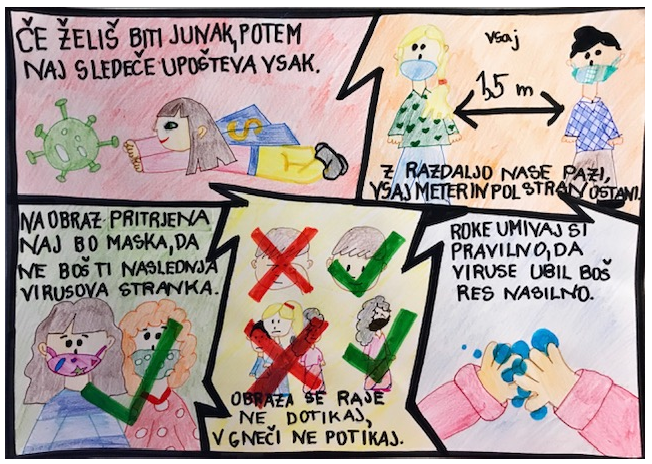 ČE ŽELIŠ BITI JUNAK, POTEM
NAJ SLEDEČE UPOŠTEVA VSAK.
S
vsaj
1,5 m
Z RAZDALJO NASE PAZI,
VSAJ METER IN POL STRAN OSTANI.
NA OBRAZ PRITRJENA
NAJ BO MASKA, DA
NE BOŠ TI NASLEDNJA
VIRUSOVA STRANKA.
OBRAZA SE RAJE
NE DOTIKAJ,
V GNEČI NE POTIKAJ.
ROKE UMIVAJ SI
PRAVILNO, DA
VIRUSE UBIL BOŠ
RES NASILNO.